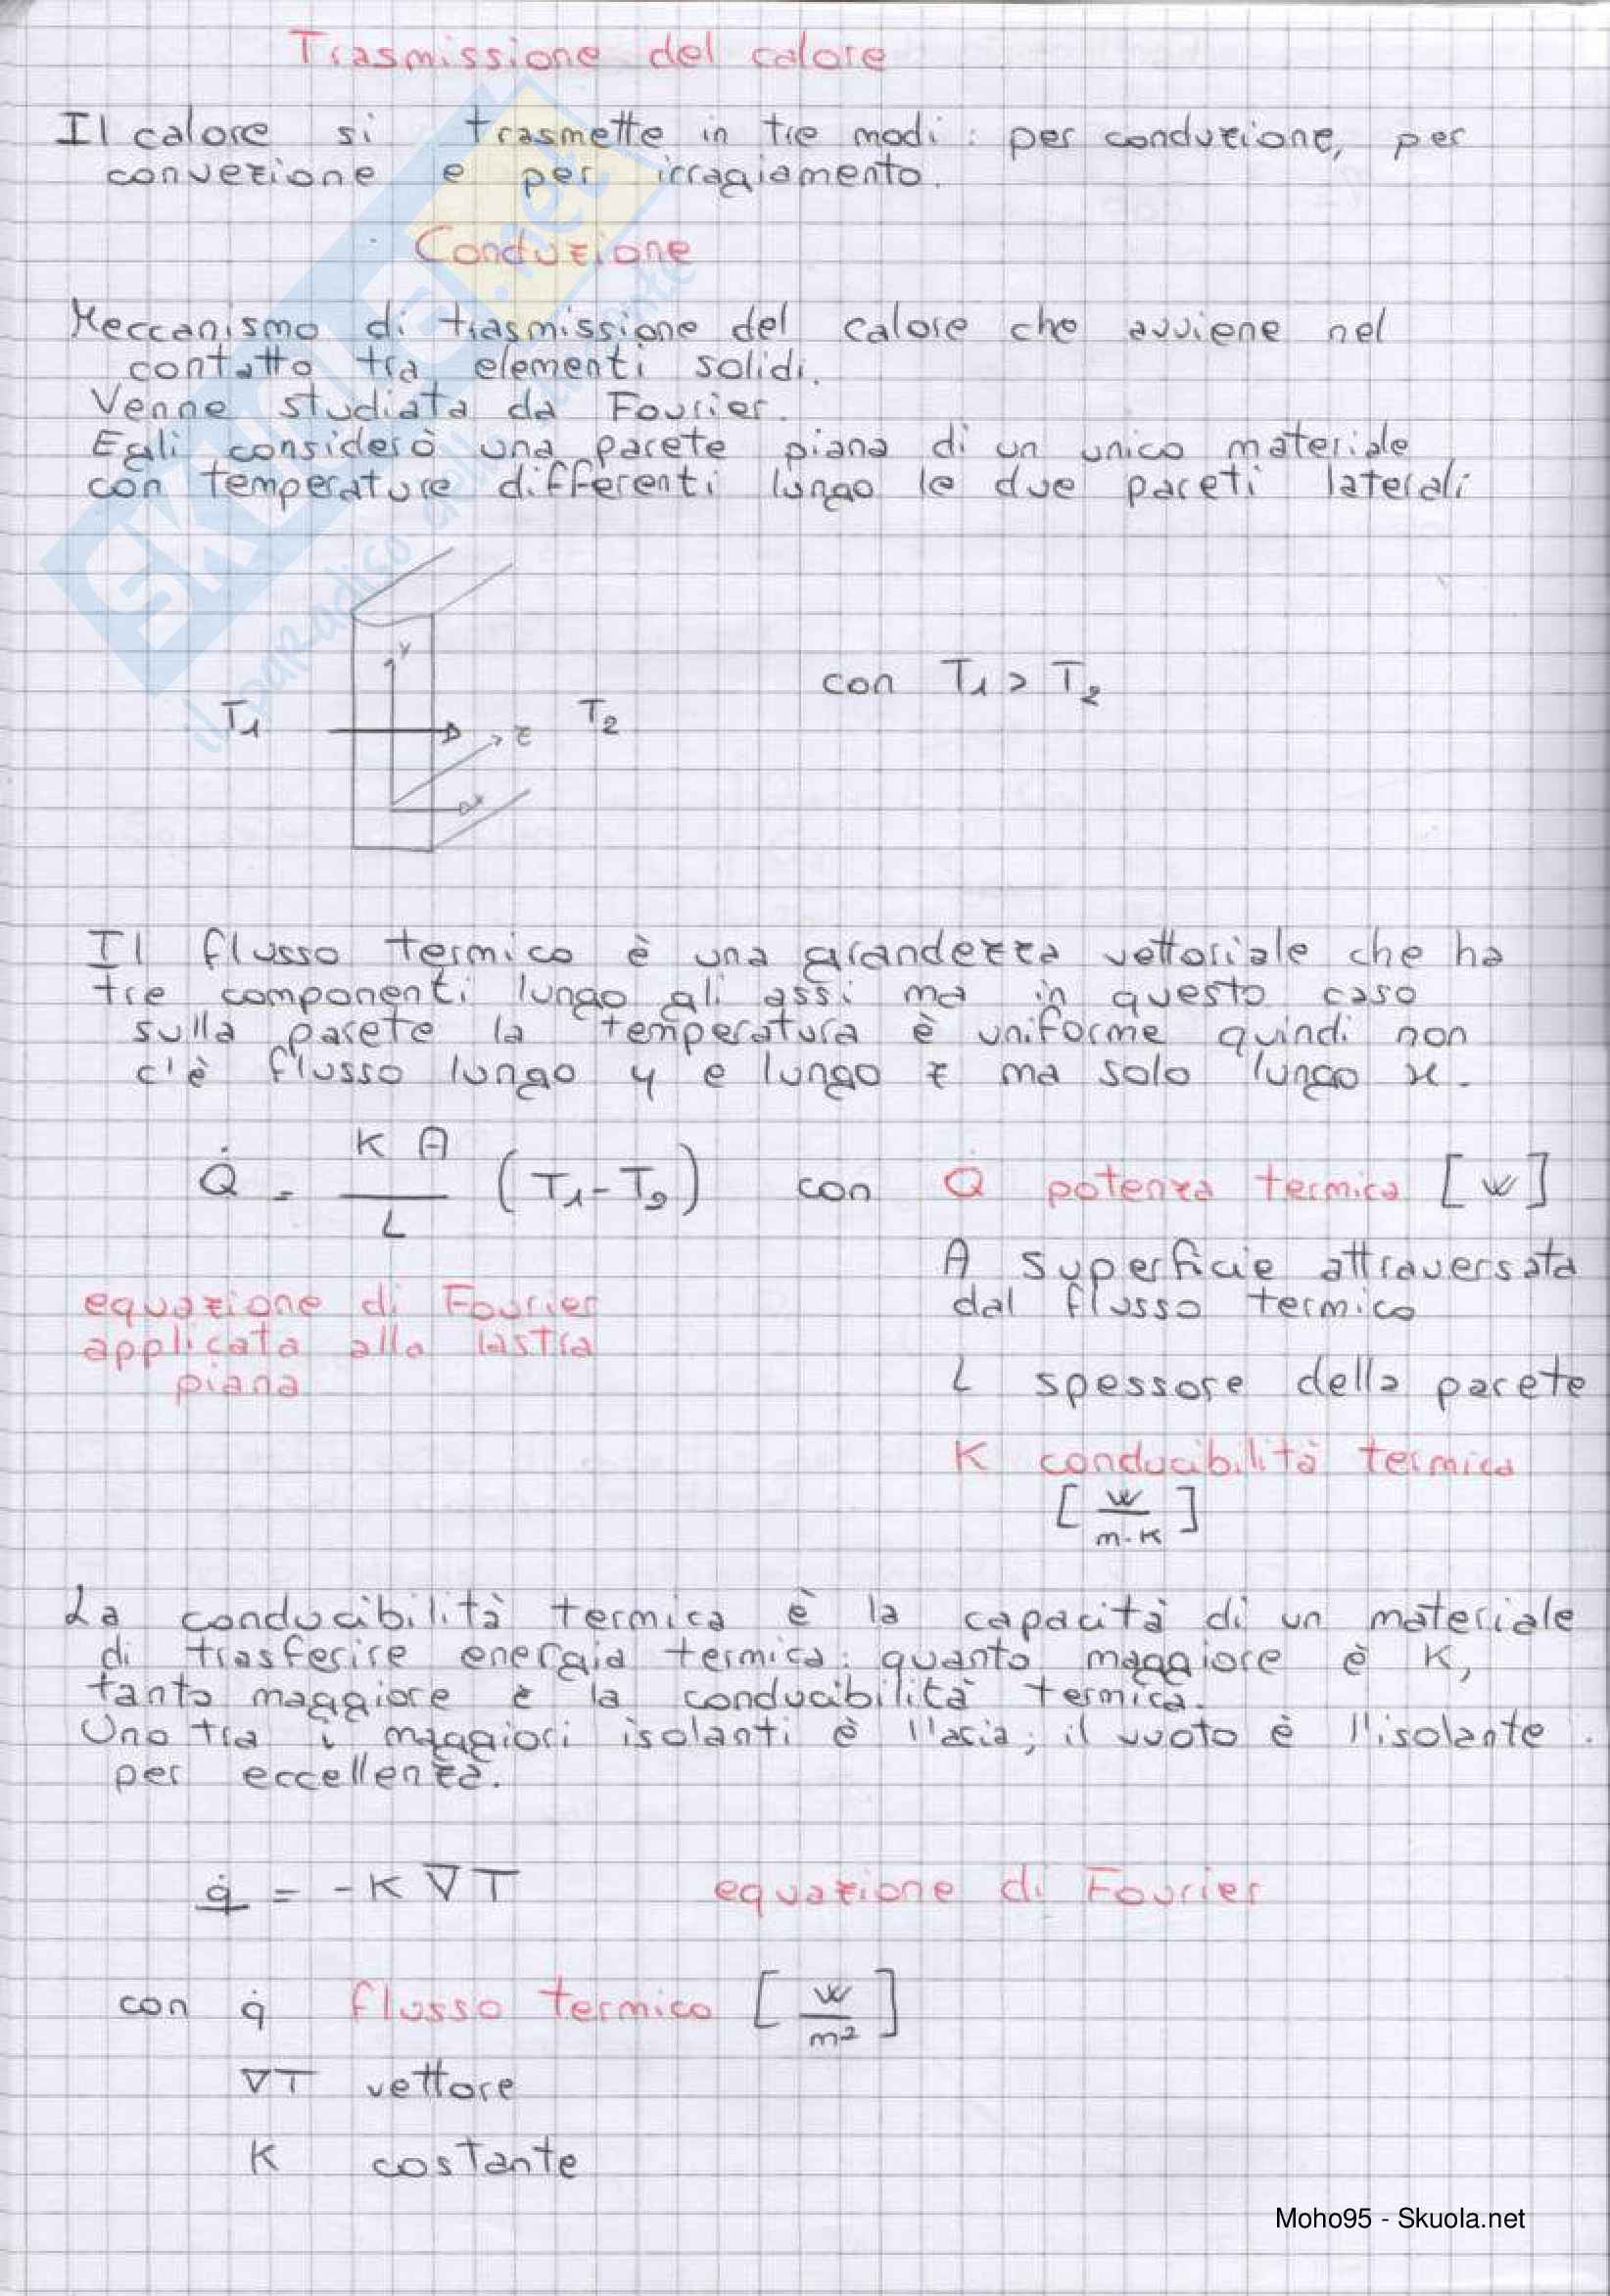 Trasmissione del calore
Il calore si trasmette in tre modi: per conduzione, per
convezione e per irragiamento.
Conduzione
Meccanismo di trasmissione del calore che avviene nel
contatto tra elementi solidi.
Venne studiata da Fourier.
Egli considerò una parete piana di un unico materiale
con temperature differenti lungo le due pareti laterali
y
con T1 > T2
T1 T2
z
x
Il flusso termico è una grandezza vettoriale che ha
tre componenti lungo gli assi ma in questo caso
sulla parete la temperatura è uniforme quindi non
c'è flusso lungo y e lungo z ma solo lungo x.
Q̇ = K A / L (T1-T2) con Q̇ potenza termica [W]
A superficie attraversata
dal flusso termico
equazione di Fourier
applicata alla lastra
piana
L spessore della parete
K conducibilità termica
[W / m·K]
La conducibilità termica è la capacità di un materiale
di trasferire energia termica: quanto maggiore è K,
tanto maggiore è la conducibilità termica.
Uno tra i maggiori isolanti è l'aria; il vuoto è l'isolante
per eccellenza.
q̇ = -K ∇T equazione di Fourier
con q̇ flusso termico [W / m²]
∇T vettore
K costante
Moho95 - Skuola.net
SKUOLA.net
il paradiso dello studente